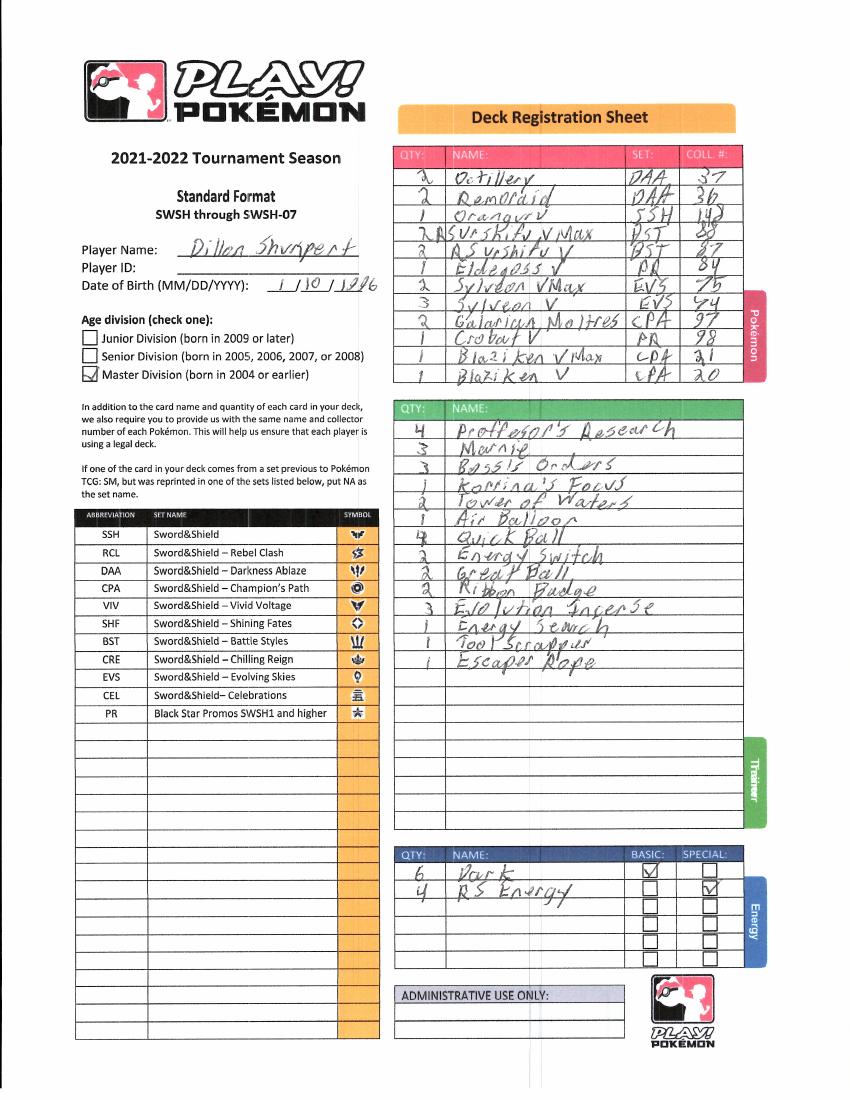 PLAY!
POKÉMON
Deck Registration Sheet
2021-2022 Tournament Season
Standard Format
SWSH through SWSH-07
Player Name: Dillon Shurpert
Player ID:
Date of Birth (MM/DD/YYYY): 1 / 10 / 1996
Age division (check one):
Junior Division (born in 2009 or later)
Senior Division (born in 2005, 2006, 2007, or 2008)
Master Division (born in 2004 or earlier)
In addition to the card name and quantity of each card in your deck,
we also require you to provide us with the same name and collector
number of each Pokémon. This will help us ensure that each player is
using a legal deck.
If one of the card in your deck comes from a set previous to Pokémon
TCG: SM, but was reprinted in one of the sets listed below, put NA as
the set name.
ABBREVIATION SET NAME SYMBOL
SSH Sword&Shield
RCL Sword&Shield – Rebel Clash
DAA Sword&Shield – Darkness Ablaze
CPA Sword&Shield – Champion's Path
VIV Sword&Shield – Vivid Voltage
SHF Sword&Shield – Shining Fates
BST Sword&Shield – Battle Styles
CRE Sword&Shield – Chilling Reign
EVS Sword&Shield – Evolving Skies
CEL Sword&Shield– Celebrations
PR Black Star Promos SWSH1 and higher
QTY: NAME: SET: COLL. #:
2 Octillery DAA 37
2 Remoraid DAA 36
1 Oranguru SSH 148
2 RS Urshifu VMax BST 88
2 RS Urshifu V BST 87
1 Eldegoss V PR 84
2 Sylveon VMax EVS 75
3 Sylveon V EVS 74
2 Galarian Moltres CPA 97
1 Crobat V PR 98
1 Blaziken VMax CPA 21
1 Blaziken V CPA 20
Pokémon
QTY: NAME:
4 Proffesor's Research
3 Marnie
3 Boss's Orders
1 Korrina's Focus
2 Tower of Waters
1 Air Balloon
4 Quick Ball
2 Energy Switch
2 Great Ball
2 Ribbon Badge
3 Evolution Incense
1 Energy Search
1 Tool Scrapper
1 Escaper Rope
Trainer
QTY: NAME: BASIC: SPECIAL:
6 Dark
4 RS Energy
Energy
ADMINISTRATIVE USE ONLY:
PLAY!
POKÉMON